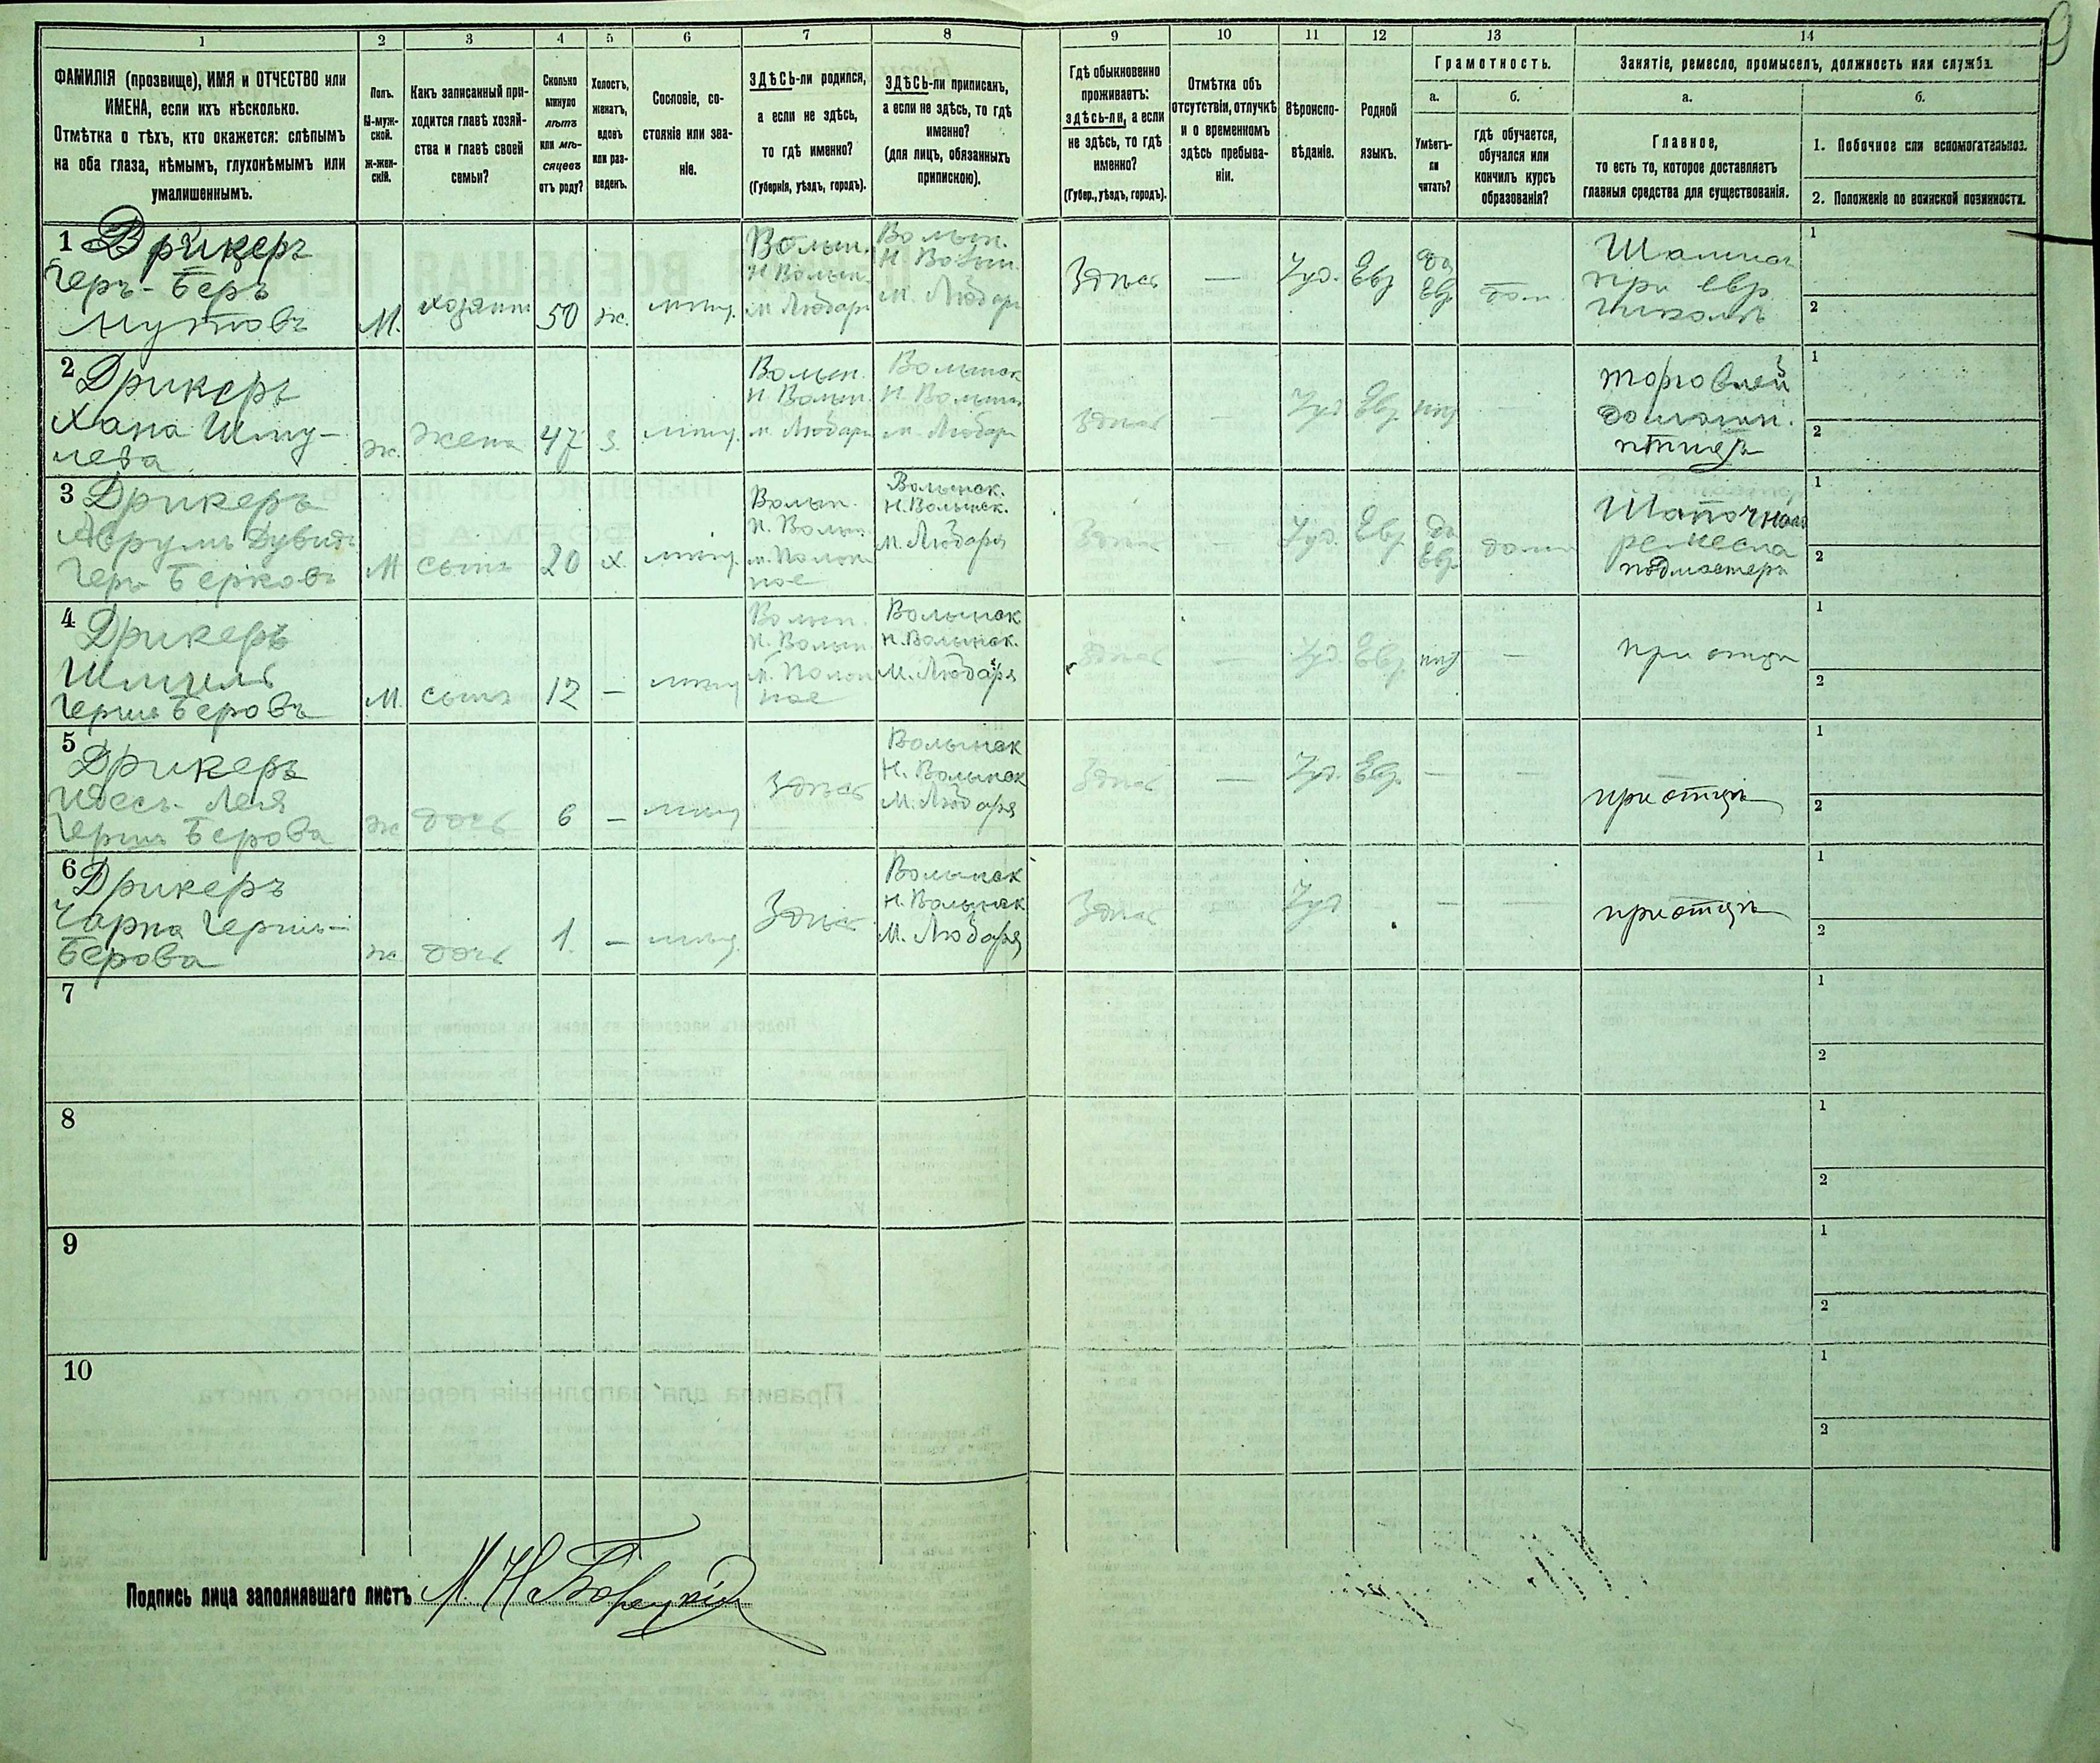 9
1 2 3 4 5 6 7 8 9 10 11 12 13 14
ФАМИЛІЯ (прозвище), ИМЯ и ОТЧЕСТВО или
ИМЕНА, если ихъ нѣсколько.
Отмѣтка о тѣхъ, кто окажется: слѣпымъ
на оба глаза, нѣмымъ, глухонѣмымъ или
умалишеннымъ.
Полъ.
М-муж-
ской.
ж-жен-
скій.
Какъ записанный при-
ходится главѣ хозяй-
ства и главѣ своей
семьи?
Сколько
минуло
лѣтъ
или мѣ-
сяцевъ
отъ роду?
Холостъ,
женатъ,
вдовъ
или раз-
веденъ.
Сословіе, со-
стояніе или зва-
ніе.
ЗДѢСЬ-ли родился,
а если не здѣсь,
то гдѣ именно?
(Губернія, уѣздъ, городъ).
ЗДѢСЬ-ли приписанъ,
а если не здѣсь, то гдѣ
именно?
(для лицъ, обязанныхъ
припискою).
Гдѣ обыкновенно
проживаетъ:
здѣсь-ли, а если
не здѣсь, то гдѣ
именно?
(Губер., уѣздъ, городъ).
Отмѣтка объ
отсутствіи, отлучкѣ
и о временномъ
здѣсь пребыва-
ніи.
Вѣроиспо-
вѣданіе.
Родной
языкъ.
Грамотность.
а.
Умѣетъ-
ли
читать?
б.
гдѣ обучается,
обучался или
кончилъ курсъ
образованія?
Занятіе, ремесло, промыселъ, должность или служба.
а.
Главное,
то есть то, которое доставляетъ
главныя средства для существованія.
б.
1. Побочное или вспомогательное.
2. Положеніе по воинской повинности.
1 Дрикеръ
Геръ-Беръ
М. хозяинъ 50 ж. мѣщ.
Волын.
Н Волын.
м Любаръ
Волын.
Н Волын.
м. Любаръ
Здѣсь — Іуд. Евр да
Евр. дом.
при евр.
школѣ
1
2
2 Дрикеръ
Хана Шму-
лева
ж. жена 47 з. мѣщ.
Волын.
Н Волын.
м. Любаръ
Волынск
Н Волынск
м. Любаръ
здѣсь — Іуд Евр нѣт —
торговлей
домашн.
птицей
1
2
3 Дрикеръ
Аврумъ Дувидъ
Геръ Берковъ
М сынъ 20 х. мѣщ.
Волын.
Н. Волын.
м. Полон-
ное
Волынск.
Н. Волынск.
М. Любаръ
Здѣсь — Іуд. Евр да
Евр дома
Шапочнаго
ремесла
подмастеръ
1
2
4 Дрикеръ
Шмуль
Герше Беровъ
М. сынъ 12 — мѣщ
Волын.
Н. Волын.
м. Полон
ное
Волынск
Н. Волынск.
М. Любаря
здѣсь — Іуд. Евр. нѣт —
при отцѣ
1
2
5 Дрикеръ
Герша Берова
ж дочь 6 — мѣщ
Здѣсь
Волынск
Н. Волынск
М. Любаря
Здѣсь — Іуд. Евр. — —
при отцѣ
1
2
6 Дрикеръ
Чарна Гершъ-
Берова
ж дочь 1. — мѣщ.
Здѣсь
Волынск
Н. Волынск
М. Любаря
Здѣсь Іуд — — —
при отцѣ
1
2
7
1
2
8
1
2
9
1
2
10
1
2
Подпись лица заполнявшаго листъ